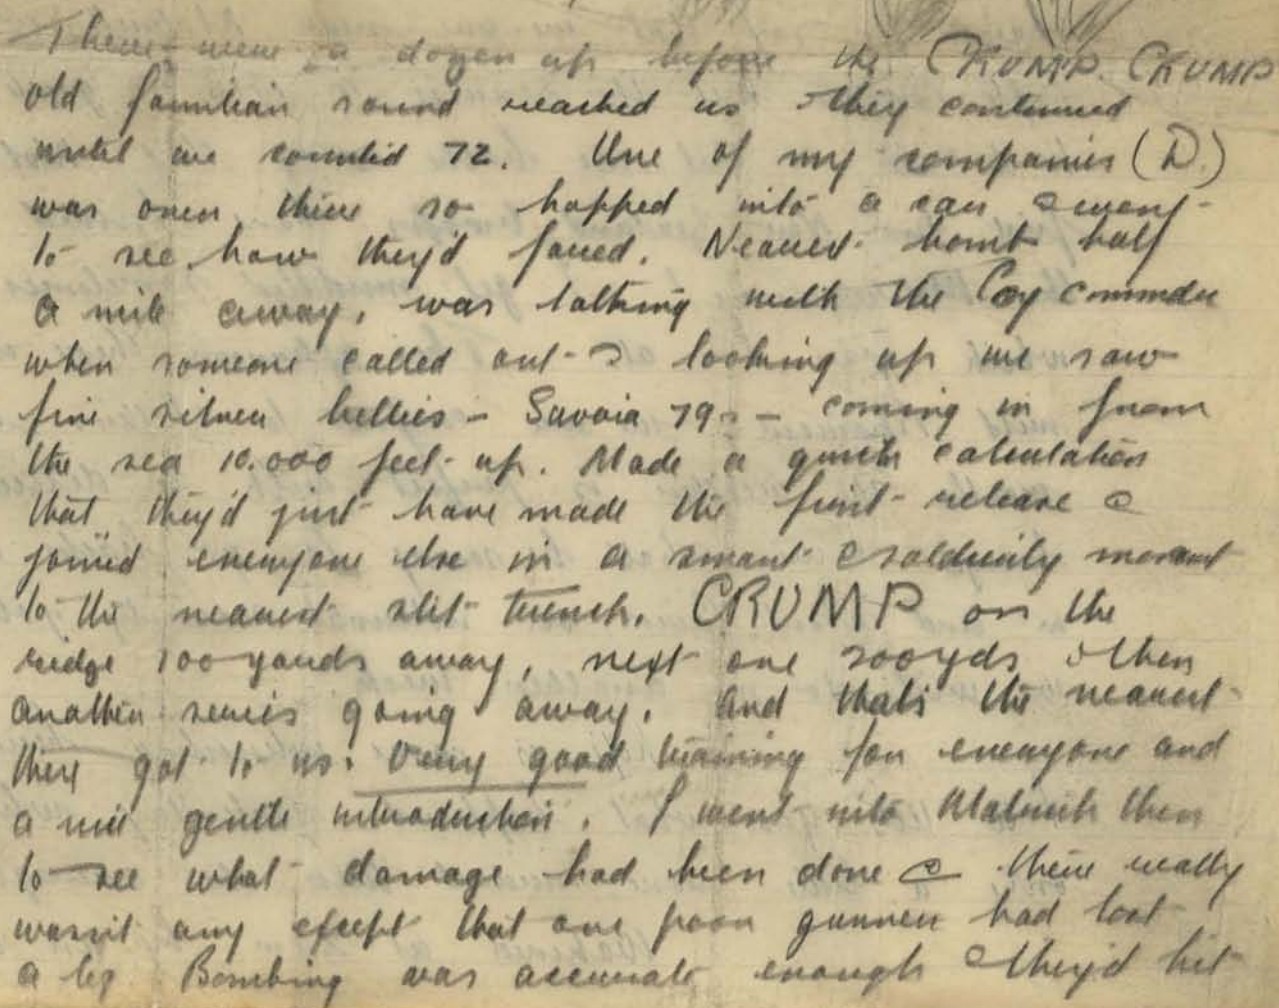 There were a dozen up before the CRUMP CRUMP
old familiar sound reached us & they continued
until we counted 72. One of my companies (D.)
was over there so hopped into a car & went
to see how they'd fared. Nearest bomb half
a mile away, was talking with the Coy Commdr
when someone called out & looking up we saw
five silver bellies - Savoia 79s - coming in from
the sea 10.000 feet up. Made a quick calculation
that they'd just have made the first release &
joined everyone else in a smart & soldierly movement
to the nearest slit trench. CRUMP on the
ridge 100 yards away, next one 200yds & then
another series going away. And that's the nearest
they got to us. Very good training for everyone and
a nice gentle introduction. I went into Matruh then
to see what damage had been done & there really
wasn't any except that one poor gunner had lost
a leg. Bombing was accurate enough & they'd hit